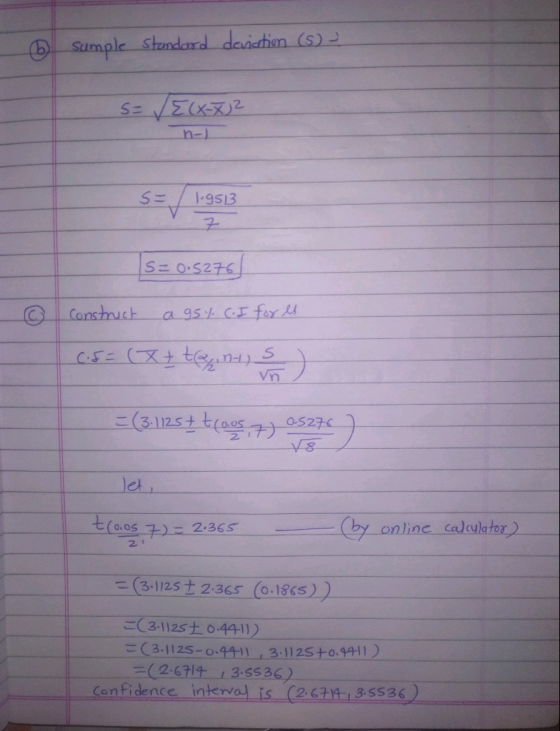 (b) Sample standard deviation (S) :-
S = √ Σ(x-x̄)²
n-1
S = √ 1.9513
7
S = 0.5276
(c) Construct a 95% C.I for μ
C.I = (x̄ ± t(α/2, n-1) S/√n)
= (3.1125 ± t(0.05/2, 7) 0.5276/√8)
let,
t(0.05/2, 7) = 2.365 —— (by online calculator)
= (3.1125 ± 2.365 (0.1865))
= (3.1125 ± 0.4411)
= (3.1125-0.4411 , 3.1125+0.4411)
= (2.6714 , 3.5536)
Confidence interval is (2.6714, 3.5536)